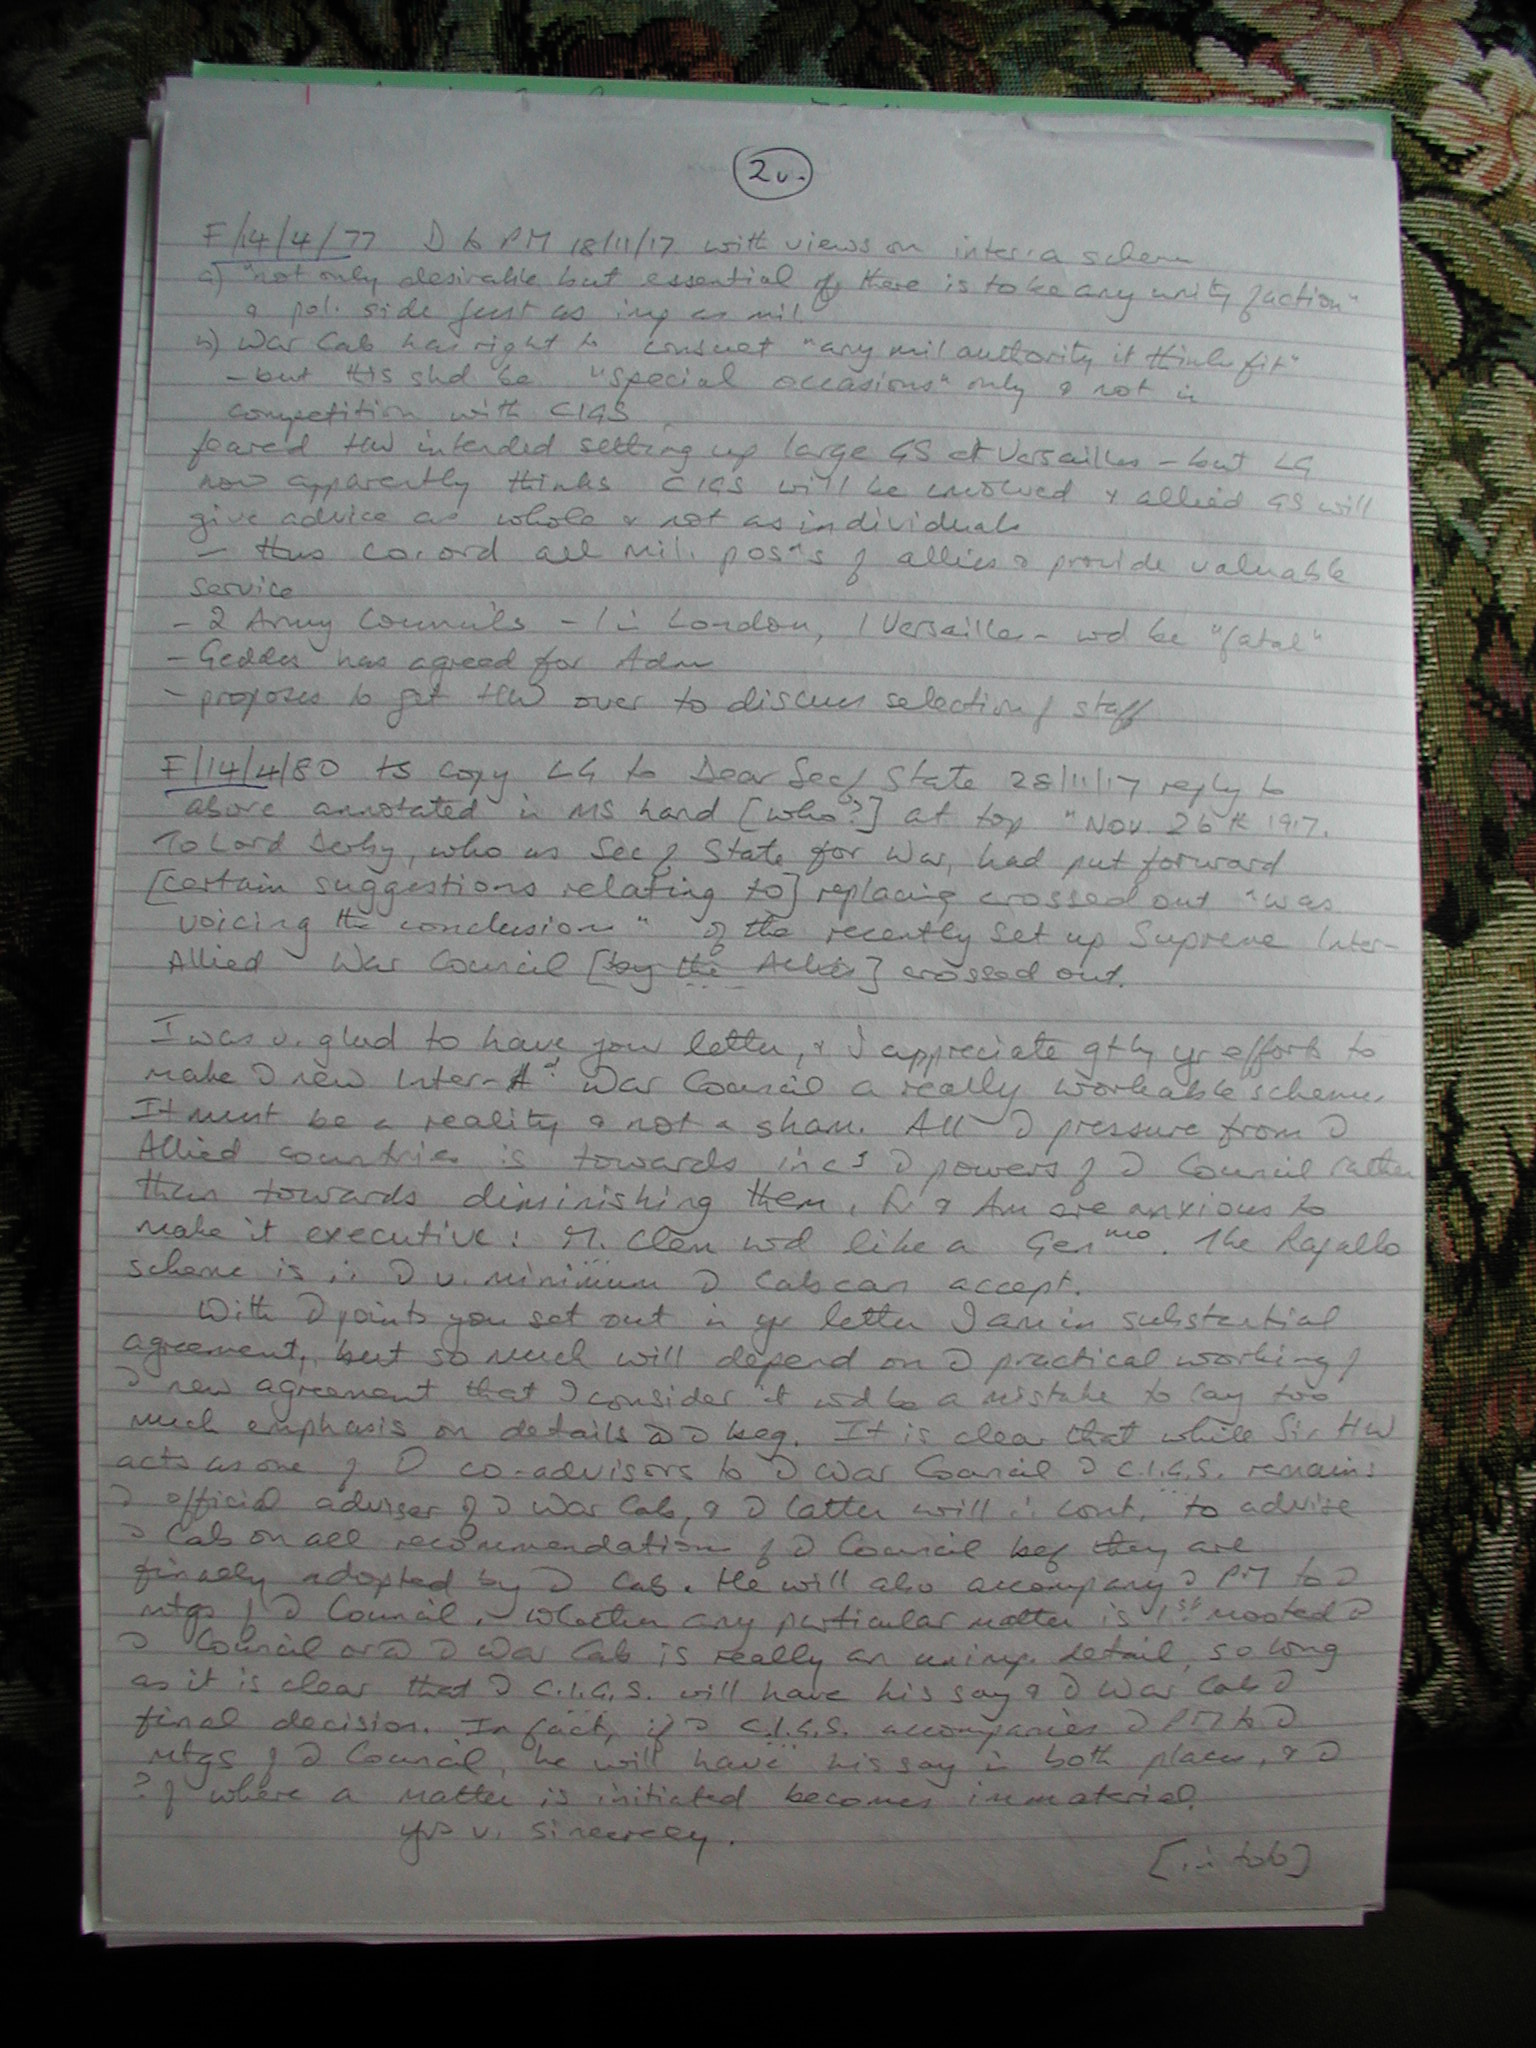 2v.
F/14/4/77 D to PM 18/11/17 with views on inter-a scheme
a) "not only desirable but essential if there is to be any unity of action"
& pol. side just as imp as mil
b) War Cab has right to consult "any mil authority it thinks fit"
- but this shd be "special occasions" only & not in
competition with CIGS
feared HW intended setting up large GS at Versailles - but LG
now apparently thinks CIGS will be involved & allied GS will
give advice as whole & not as individuals
- thus co.ord all mil. posns of allies & provide valuable
service
- 2 Army Councils - 1 in London, 1 Versailles - wd be "fatal"
- Geddes has agreed for Adm
- proposes to get HW over to discuss selection of staff
F/14/4/80 ts copy LG to Dear Sec of State 28/11/17 reply to
above annotated in MS hand [who?] at top "Nov. 26th 1917.
To Lord Derby, who as Sec of State for War, had put forward
[certain suggestions relating to] replacing crossed out "was
voicing the conclusions" of the recently set up Supreme Inter-
Allied War Council [by the Allies] crossed out.
I was v. glad to have your letter, & I appreciate gtly yr efforts to
make ∂ new Inter-Ad War Council a really workable scheme.
It must be a reality & not a sham. All ∂ pressure from ∂
Allied countries is towards incg ∂ powers of ∂ Council rather
than towards diminishing them. Fr & Am are anxious to
make it executive: M. Clem wd like a Genmo. The Rapallo
scheme is ∴ ∂ v. minimum ∂ Cab can accept.
With ∂ points you set out in yr letter I am in substantial
agreement, but so much will depend on ∂ practical working of
∂ new agreement that I consider it wd be a mistake to lay too
much emphasis on details @ ∂ beg. It is clear that while Sir HW
acts as one of ∂ co-advisors to ∂ War Council ∂ C.I.G.S. remains
∂ official adviser of ∂ War Cab, & ∂ latter will ∴ cont. to advise
∂ Cab on all recommendations of ∂ Council bef they are
finally adopted by ∂ Cab. He will also accompany ∂ PM to ∂
mtgs of ∂ Council. Whether any particular matter is 1st mooted @
∂ Council or @ ∂ War Cab is really an unimp. detail, so long
as it is clear that ∂ C.I.G.S. will have his say & ∂ War Cab ∂
final decision. In fact, if ∂ C.I.G.S. accompanies ∂ PM to ∂
mtgs of ∂ Council, he will have his say in both places, & ∂
? of where a matter is initiated becomes immaterial.
yrs v. sincerely.
[in toto]